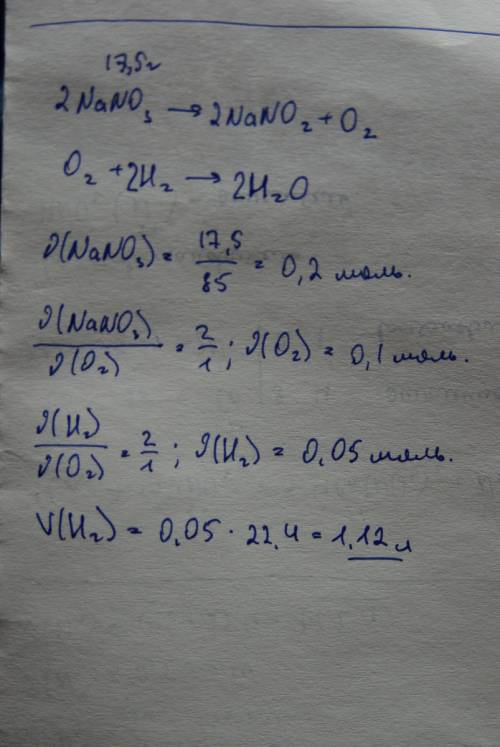 17,5г
2NaNO₃ → 2NaNO₂ + O₂
O₂ + 2H₂ → 2H₂O
ν(NaNO₃) = 17,5 / 85 = 0,2 моль.
ν(NaNO₃) / ν(O₂) = 2/1 ; ν(O₂) = 0,1 моль.
ν(H₂) / ν(O₂) = 2/1 ; ν(H₂) = 0,05 моль.
V(H₂) = 0,05 · 22,4 = 1,12 л